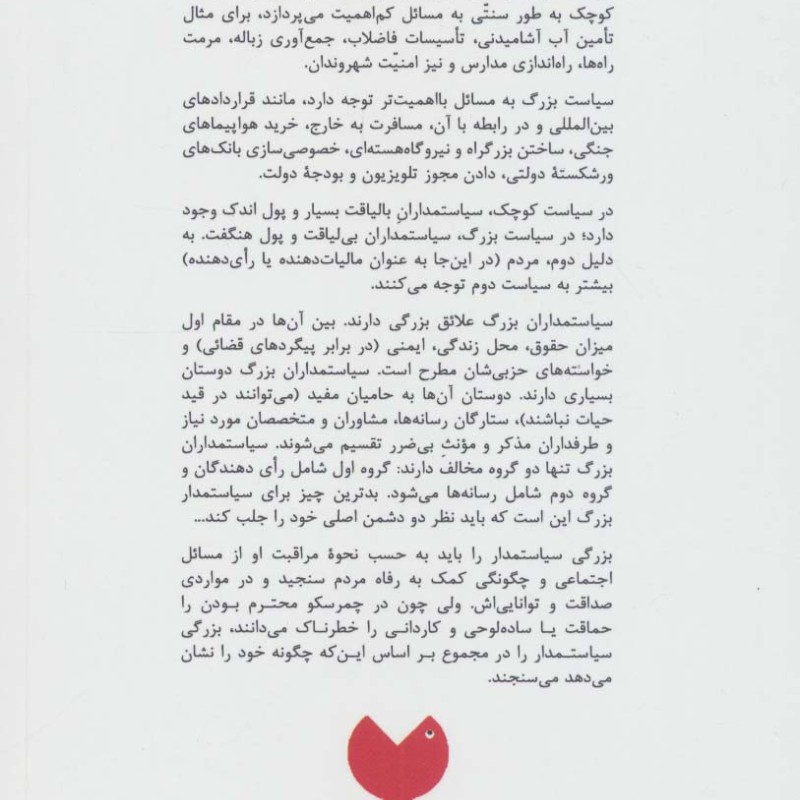 کوچک به طور سنتّی به مسائل کم‌اهمیت می‌پردازد، برای مثال
تأمین آب آشامیدنی، تأسیسات فاضلاب، جمع‌آوری زباله، مرمت
راه‌ها، راه‌اندازی مدارس و نیز امنیّت شهروندان.
سیاست بزرگ به مسائل بااهمیت‌تر توجه دارد، مانند قراردادهای
بین‌المللی و در رابطه با آن، مسافرت به خارج، خرید هواپیماهای
جنگی، ساختن بزرگراه و نیروگاه‌هسته‌ای، خصوصی‌سازی بانک‌های
ورشکستهٔ دولتی، دادن مجوز تلویزیون و بودجهٔ دولت.
در سیاست کوچک، سیاستمدارانِ بالیاقت بسیار و پول اندک وجود
دارد؛ در سیاست بزرگ، سیاستمداران بی‌لیاقت و پول هنگفت. به
دلیل دوم، مردم (در این‌جا به عنوان مالیات‌دهنده یا رأی‌دهنده)
بیشتر به سیاست دوم توجه می‌کنند.
سیاستمداران بزرگ علائق بزرگی دارند. بین آن‌ها در مقام اول
میزان حقوق، محل زندگی، ایمنی (در برابر پیگردهای قضائی) و
خواسته‌های حزبی‌شان مطرح است. سیاستمداران بزرگ دوستان
بسیاری دارند. دوستان آن‌ها به حامیان مفید (می‌توانند در قید
حیات نباشند)، ستارگان رسانه‌ها، مشاوران و متخصصان مورد نیاز
و طرفداران مذکر و مؤنثِ بی‌ضرر تقسیم می‌شوند. سیاستمداران
بزرگ تنها دو گروه مخالف دارند: گروه اول شامل رأی دهندگان و
گروه دوم شامل رسانه‌ها می‌شود. بدترین چیز برای سیاستمدار
بزرگ این است که باید نظر دو دشمن اصلی خود را جلب کند...
بزرگی سیاستمدار را باید به حسب نحوهٔ مراقبت او از مسائل
اجتماعی و چگونگی کمک به رفاه مردم سنجید و در مواردی
صداقت و توانایی‌اش. ولی چون در چمرسکو محترم بودن را
حماقت یا ساده‌لوحی و کاردانی را خطرناک می‌دانند، بزرگی
سیاستمدار را در مجموع بر اساس این‌که چگونه خود را نشان
می‌دهد می‌سنجند.